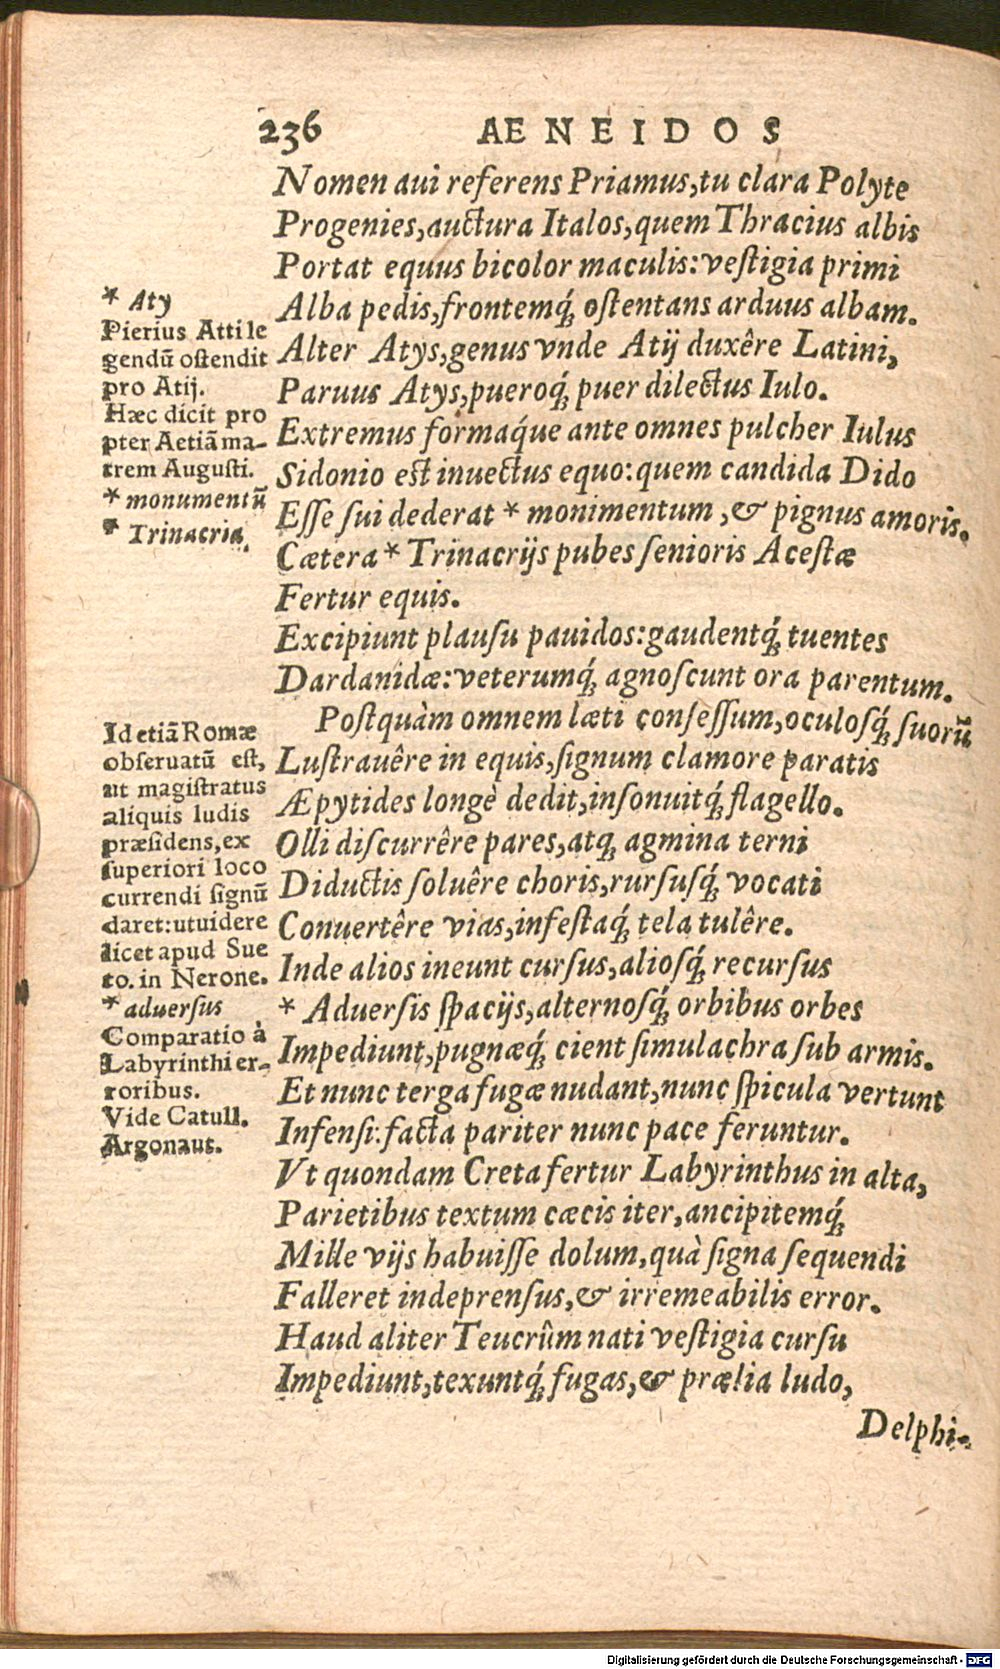 236 AENEIDOS
Nomen aui referens Priamus, tu clara Polyte
Progenies, auctura Italos, quem Thracius albis
Portat equus bicolor maculis: vestigia primi
Alba pedis, frontemq́; ostentans arduus albam.
Alter Atys, genus vnde Atij duxêre Latini,
Paruus Atys, pueroq́; puer dilectus Iulo.
Extremus formaq́ue ante omnes pulcher Iulus
Sidonio est inuectus equo: quem candida Dido
Esse sui dederat * monimentum, & pignus amoris.
Cætera * Trinacrijs pubes senioris Acestæ
Fertur equis.
Excipiunt plausu pauidos: gaudentq́; tuentes
Dardanidæ: veterumq́; agnoscunt ora parentum.
Postquàm omnem læti consessum, oculosq́; suorũ
Lustrauêre in equis, signum clamore paratis
Æpytides longè dedit, insonuitq́; flagello.
Olli discurrêre pares, atq; agmina terni
Diductis soluêre choris, rursusq́; vocati
Conuertêre vias, infestaq́; tela tulêre.
Inde alios ineunt cursus, aliosq́; recursus
* Aduersis spacijs, alternosq́; orbibus orbes
Impediunt, pugnæq́; cient simulachra sub armis.
Et nunc terga fugæ nudant, nunc spicula vertunt
Infensi: facta pariter nunc pace feruntur.
Vt quondam Creta fertur Labyrinthus in alta,
Parietibus textum cæcis iter, ancipitemq́;
Mille vijs habuisse dolum, quà signa sequendi
Falleret indeprensus, & irremeabilis error.
Haud aliter Teucrûm nati vestigia cursu
Impediunt, texuntq́; fugas, & prælia ludo,
Delphi-
* Aty
Pierius Atti le
gendũ ostendit
pro Atij.
Hæc dicit pro
pter Aetiã ma-
trem Augusti.
* monumentũ
* Trinacria
Id etiã Romæ
obseruatũ est,
ut magistratus
aliquis ludis
præsidens, ex
superiori loco
currendi signũ
daret: ut uidere
licet apud Sue
to. in Nerone.
* aduersus
Comparatio à
Labyrinthi er-
roribus.
Vide Catull.
Argonaut.
Digitalisierung gefördert durch die Deutsche Forschungsgemeinschaft - DFG